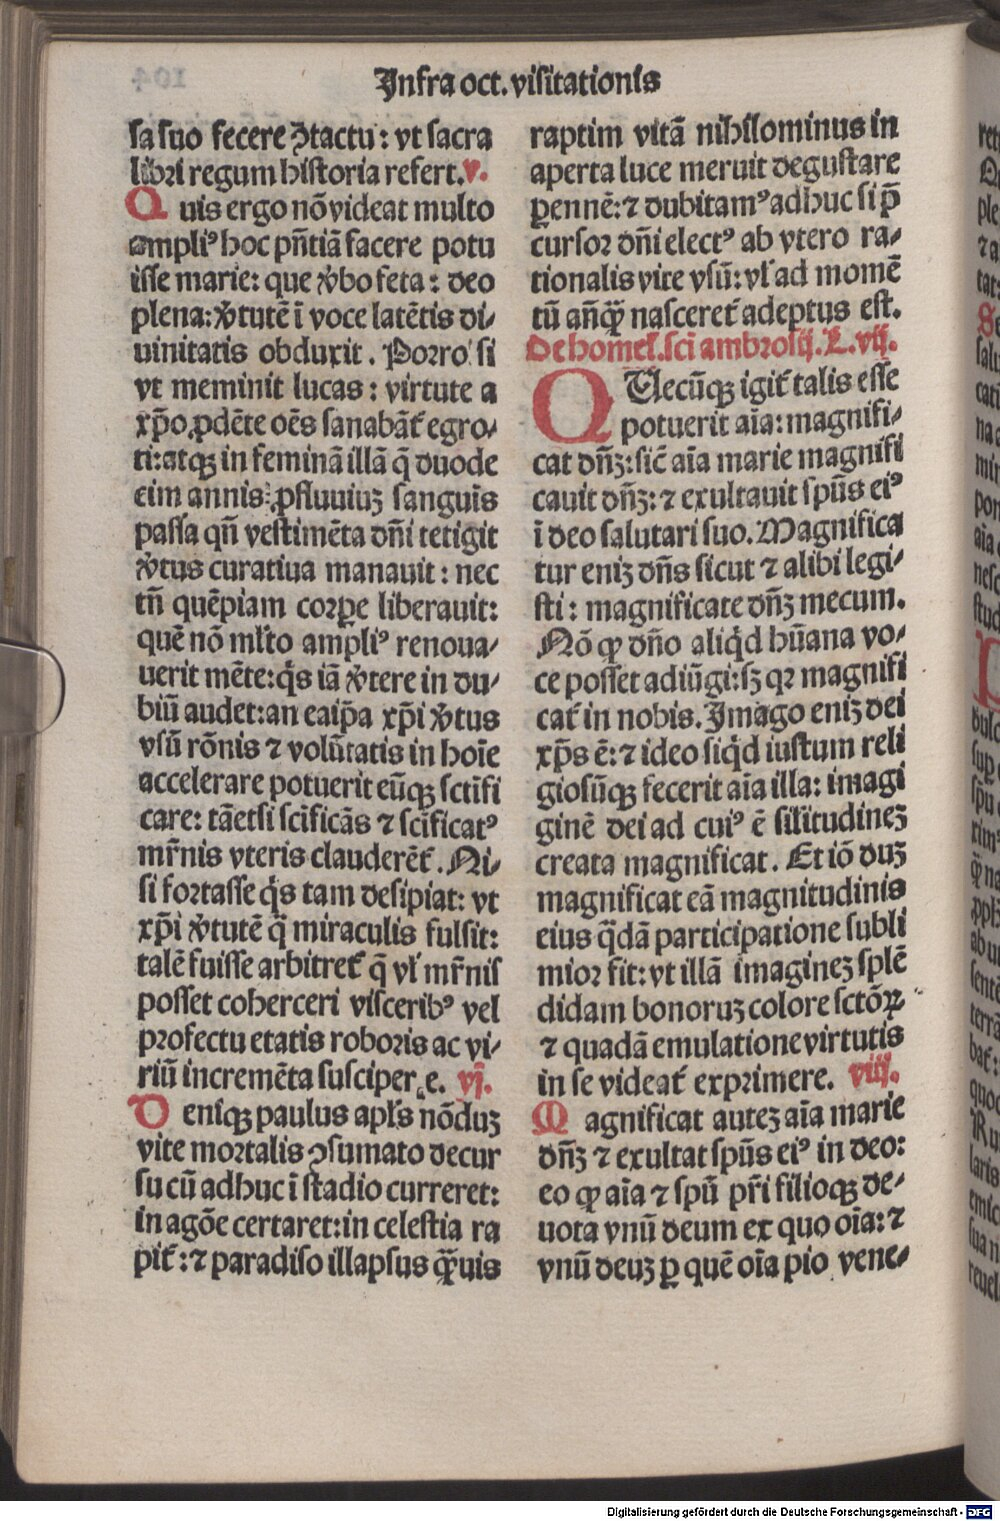 Infra oct. visitationis
sa suo fecere ꝯtactu: vt sacra
libri regum historia refert. v.
Quis ergo nō videat multo
ampliꝰ hoc pn̄tiā facere potu
isse marie: que v̓bo feta: deo
plena: v̓tutē ī voce latētis di-
uinitatis obduxit. Porro si
vt meminit lucas: virtute a
xp̄o ꝓdēte oēs sanabāt̉ egro-
ti: atqꝫ in feminā illā q̄ duode
cim annis ꝓfluuiuꝫ sanguis
passa qn̄ vestimēta dn̄i tetigit
v̓tus curatiua manauit: nec
tn̄ quēpiam corꝑe liberauit:
quē nō ml̓to ampliꝰ renoua-
uerit mēte: q̓s iā v̓tere in du-
biū audet: an ea ip̄a xp̄i v̓tus
vsū rōnis ⁊ volūtatis in hoīe
accelerare potuerit eūqꝫ sctīfi
care: tāetsi scīficās ⁊ scīficatꝰ
mr̄nis vteris clauderēt̉. Ni-
si fortasse q̓s tam desipiat: vt
xp̄i v̓tutē q̄ miraculis fulsit:
talē fuisse arbitret̉ q̄ vl̓ mr̄nis
posset coherceri visceribꝰ vel
profectu etatis roboris ac vi-
riū incremēta suscipere. vj.
Deniqꝫ paulus apl̓s nōduꝫ
vite mortalis ꝯsumato decur
su cū adhuc ī stadio curreret:
in agōe certaret: in celestia ra
pit̉: ⁊ paradiso illapsus qꝫuis
raptim vitā nihilominus in
aperta luce meruit degustare
ꝑennē: ⁊ dubitamꝰ adhuc si p̄
cursor dn̄i electꝰ ab vtero ra-
tionalis vite vsū: vl̓ ad momē
tū an̄qꝫ nasceret̉ adeptus est.
De homel̓. scī ambrosij. L. vij.
QUecūqꝫ igit̉ talis esse
potuerit aīa: magnifi-
cat dn̄ꝫ: sic̄ aīa marie magnifi
cauit dn̄ꝫ: ⁊ exultauit spūs eiꝰ
ī deo salutari suo. Magnifica
tur eniꝫ dn̄s sicut ⁊ alibi legi-
sti: magnificate dn̄ꝫ mecum.
Nō ꝙ dn̄o aliq̓d hūana vo-
ce posset adiūgi: sꝫ qꝛ magnifi
cat̉ in nobis. Imago eniꝫ dei
xp̄s ē: ⁊ ideo siq̓d iustum reli
giosūqꝫ fecerit aīa illa: imagi
ginē dei ad cuiꝰ ē silitudineꝫ
creata magnificat. Et iō duꝫ
magnificat eā magnitudinis
eius q̄dā participatione subli
mior fit: vt illā imagineꝫ splē
didam bonoruꝫ colore sctōꝝ
⁊ quadā emulatione virtutis
in se videat̉ exprimere. viij.
Magnificat auteꝫ aīa marie
dn̄ꝫ ⁊ exultat spūs eiꝰ in deo:
eo ꝙ aīa ⁊ spū pr̄i filioqꝫ de-
uota vnū deum ex quo oīa: ⁊
vnū deuꝫ ꝑ quē oīa pio vene-
Digitalisierung gefördert durch die Deutsche Forschungsgemeinschaft - DFG